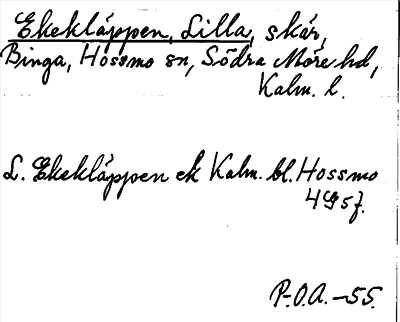 Ekekläppen, Lilla, skär,
Binga, Hossmo sn, Södra Möre hd,
Kalm. l.
L. Ekekläppen ek Kalm. bl. Hossmo
4g5f.
P.O.A. -55.